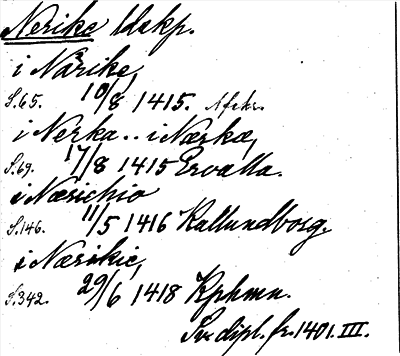 Nerike ldskp.
i Närike,
S.65. 10/8 1415. Afskr.
i Nerka.. i Nærka,
S.69. 17/8 1415 Ervalla.
i Næsichio
S.146. 11/5 1416 Kallundborg.
i Nærikie,
S.342. 29/6 1418 Kphmn.
Sv. dipl. fr. 1401. III.